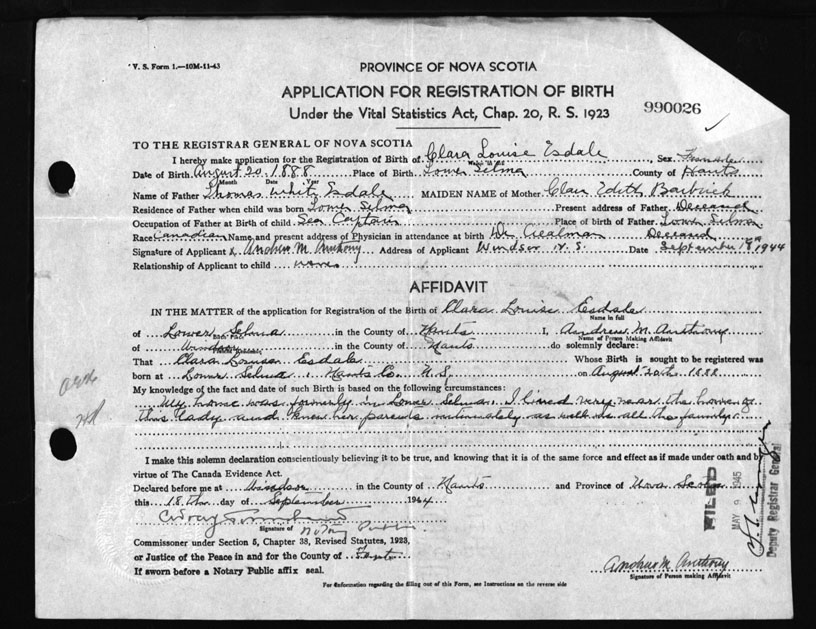 V. S. Form 1.—10M-11-43
PROVINCE OF NOVA SCOTIA
APPLICATION FOR REGISTRATION OF BIRTH
Under the Vital Statistics Act, Chap. 20, R. S. 1923
990026
TO THE REGISTRAR GENERAL OF NOVA SCOTIA
I hereby make application for the Registration of Birth of Clara Louise Esdale, Sex Female
Date of Birth August 20, 1888 Place of Birth Lower Selma County of Hants
Month Date Year
Name of Father Thomas White Esdale MAIDEN NAME of Mother Edith
Residence of Father when child was born Lower Selma Present address of Father Deceased
Occupation of Father at Birth of child Sea Captain Place of birth of Father Lower Selma
Race Canadian Name and present address of Physician in attendance at birth Dr. Deceased
Signature of Applicant Andrew M. Anthony Address of Applicant Windsor N. S. Date September 18th 1944
Relationship of Applicant to child none
AFFIDAVIT
IN THE MATTER of the application for Registration of the Birth of Clara Louise Esdale
Name in full
of Lower Selma in the County of Hants I, Andrew M. Anthony
Name of Person Making Affidavit
of Windsor in the County of Hants do solemnly declare:
That Clara Louise Esdale Whose Birth is sought to be registered was
born at Lower Selma, Hants Co. N.S. on August 20th 1888
My knowledge of the fact and date of such Birth is based on the following circumstances:
My home was formerly in Lower Selma. I lived very near the home of
this lady and knew her parents intimately as well as all the family.
I make this solemn declaration conscientiously believing it to be true, and knowing that it is of the same force and effect as if made under oath and by
virtue of The Canada Evidence Act.
Declared before me at Windsor in the County of Hants and Province of Nova Scotia
this 18th day of September 1944
Signature of
Commissioner under Section 5, Chapter 38, Revised Statutes, 1923,
or Justice of the Peace in and for the County of Hants
If sworn before a Notary Public affix seal.
Andrew M. Anthony
Signature of Person making Affidavit
For information regarding the filling out of this Form, see Instructions on the reverse side
FILED
MAY 9 1945
Deputy Registrar General